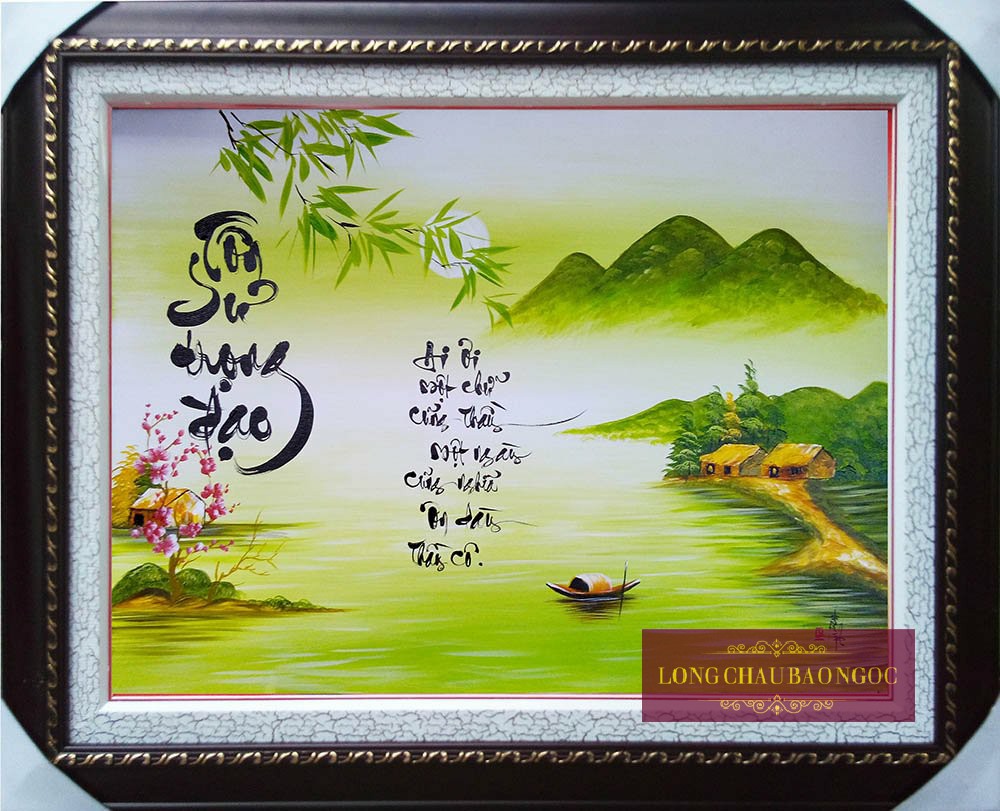 Tôn
Sư
trọng
đạo
Ai ơi
một chữ
cũng thầy
một ngày
cũng nghĩa
ơn dày
thầy cô.
LONG CHAU BAO NGOC